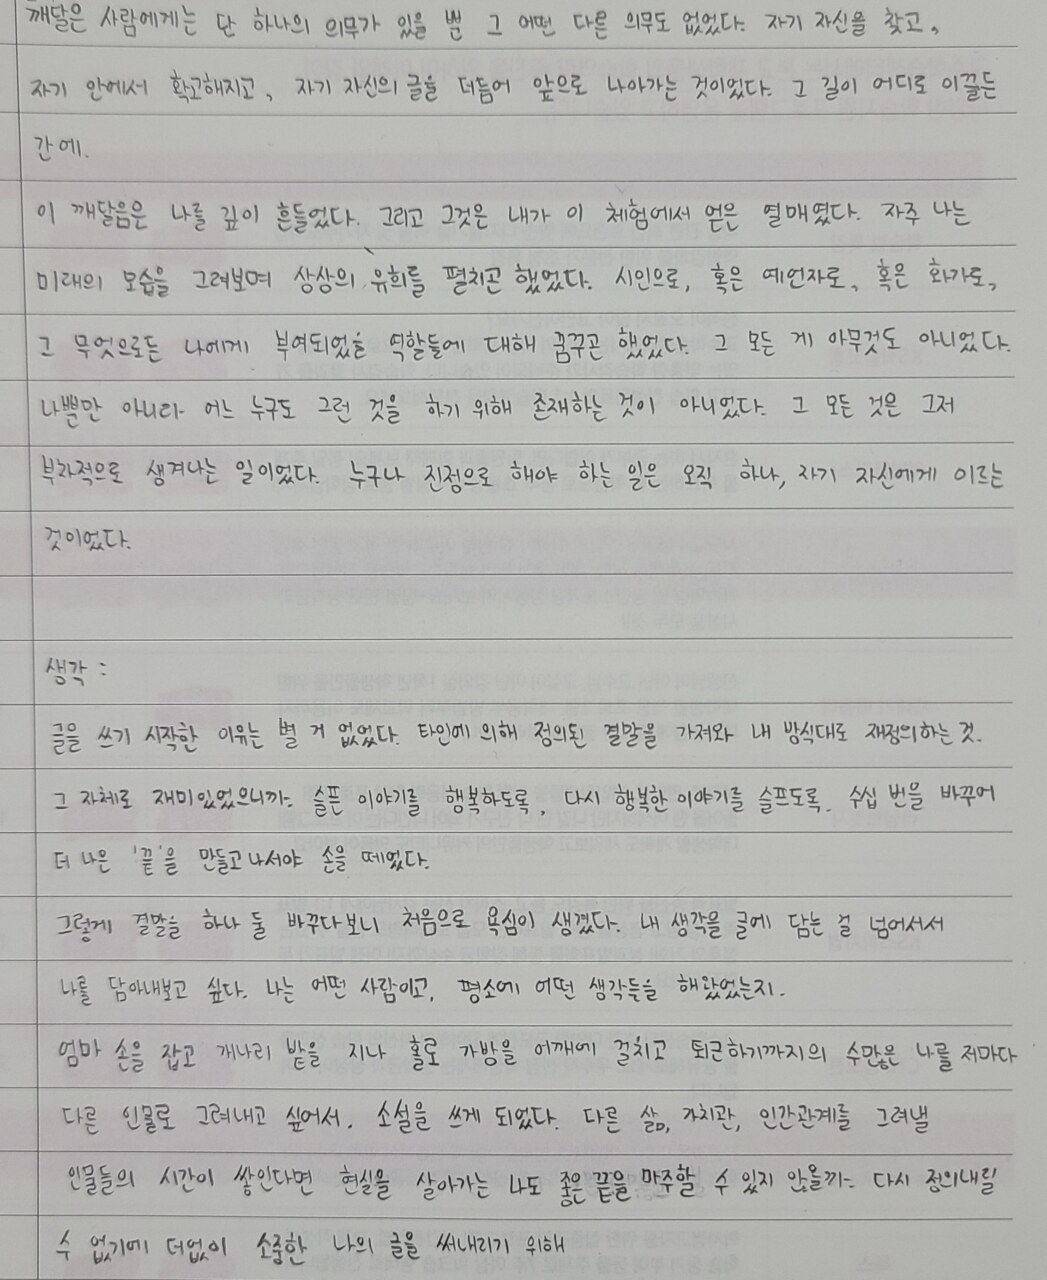 깨달은 사람에게는 단 하나의 의무가 있을 뿐 그 어떤 다른 의무도 없었다. 자기 자신을 찾고,
자기 안에서 확고해지고, 자기 자신의 글을 더듬어 앞으로 나아가는 것이었다. 그 길이 어디로 이끌든
간에.
이 깨달음은 나를 깊이 흔들었다. 그리고 그것은 내가 이 체험에서 얻은 열매였다. 자주 나는
미래의 모습을 그려보며 상상의 유희를 펼치곤 했었다. 시인으로, 혹은 예언자로, 혹은 화가로,
그 무엇으로든 나에게 부여되었을 역할들에 대해 꿈꾸곤 했었다. 그 모든 게 아무것도 아니었다.
나뿐만 아니라 어느 누구도 그런 것을 하기 위해 존재하는 것이 아니었다. 그 모든 것은 그저
부차적으로 생겨나는 일이었다. 누구나 진정으로 해야 하는 일은 오직 하나, 자기 자신에게 이르는
것이었다.
생각 :
글을 쓰기 시작한 이유는 별 거 없었다. 타인에 의해 정의된 결말을 가져와 내 방식대로 재정의하는 것.
그 자체로 재미있었으니까. 슬픈 이야기를 행복하도록, 다시 행복한 이야기를 슬프도록. 수십 번을 바꾸어
더 나은 '끝'을 만들고 나서야 손을 떼었다.
그렇게 결말을 하나 둘 바꾸다보니 처음으로 욕심이 생겼다. 내 생각을 글에 담는 걸 넘어서서
나를 담아내보고 싶다. 나는 어떤 사람이고, 평소에 어떤 생각들을 해왔었는지.
엄마 손을 잡고 개나리 밭을 지나 홀로 가방을 어깨에 걸치고 퇴근하기까지의 수많은 나를 저마다
다른 인물로 그려내고 싶어서. 소설을 쓰게 되었다. 다른 삶, 가치관, 인간관계를 그려낼
인물들의 시간이 쌓인다면 현실을 살아가는 나도 좋은 끝을 마주할 수 있지 않을까. 다시 정의내릴
수 없기에 더없이 소중한 나의 글을 써내리기 위해